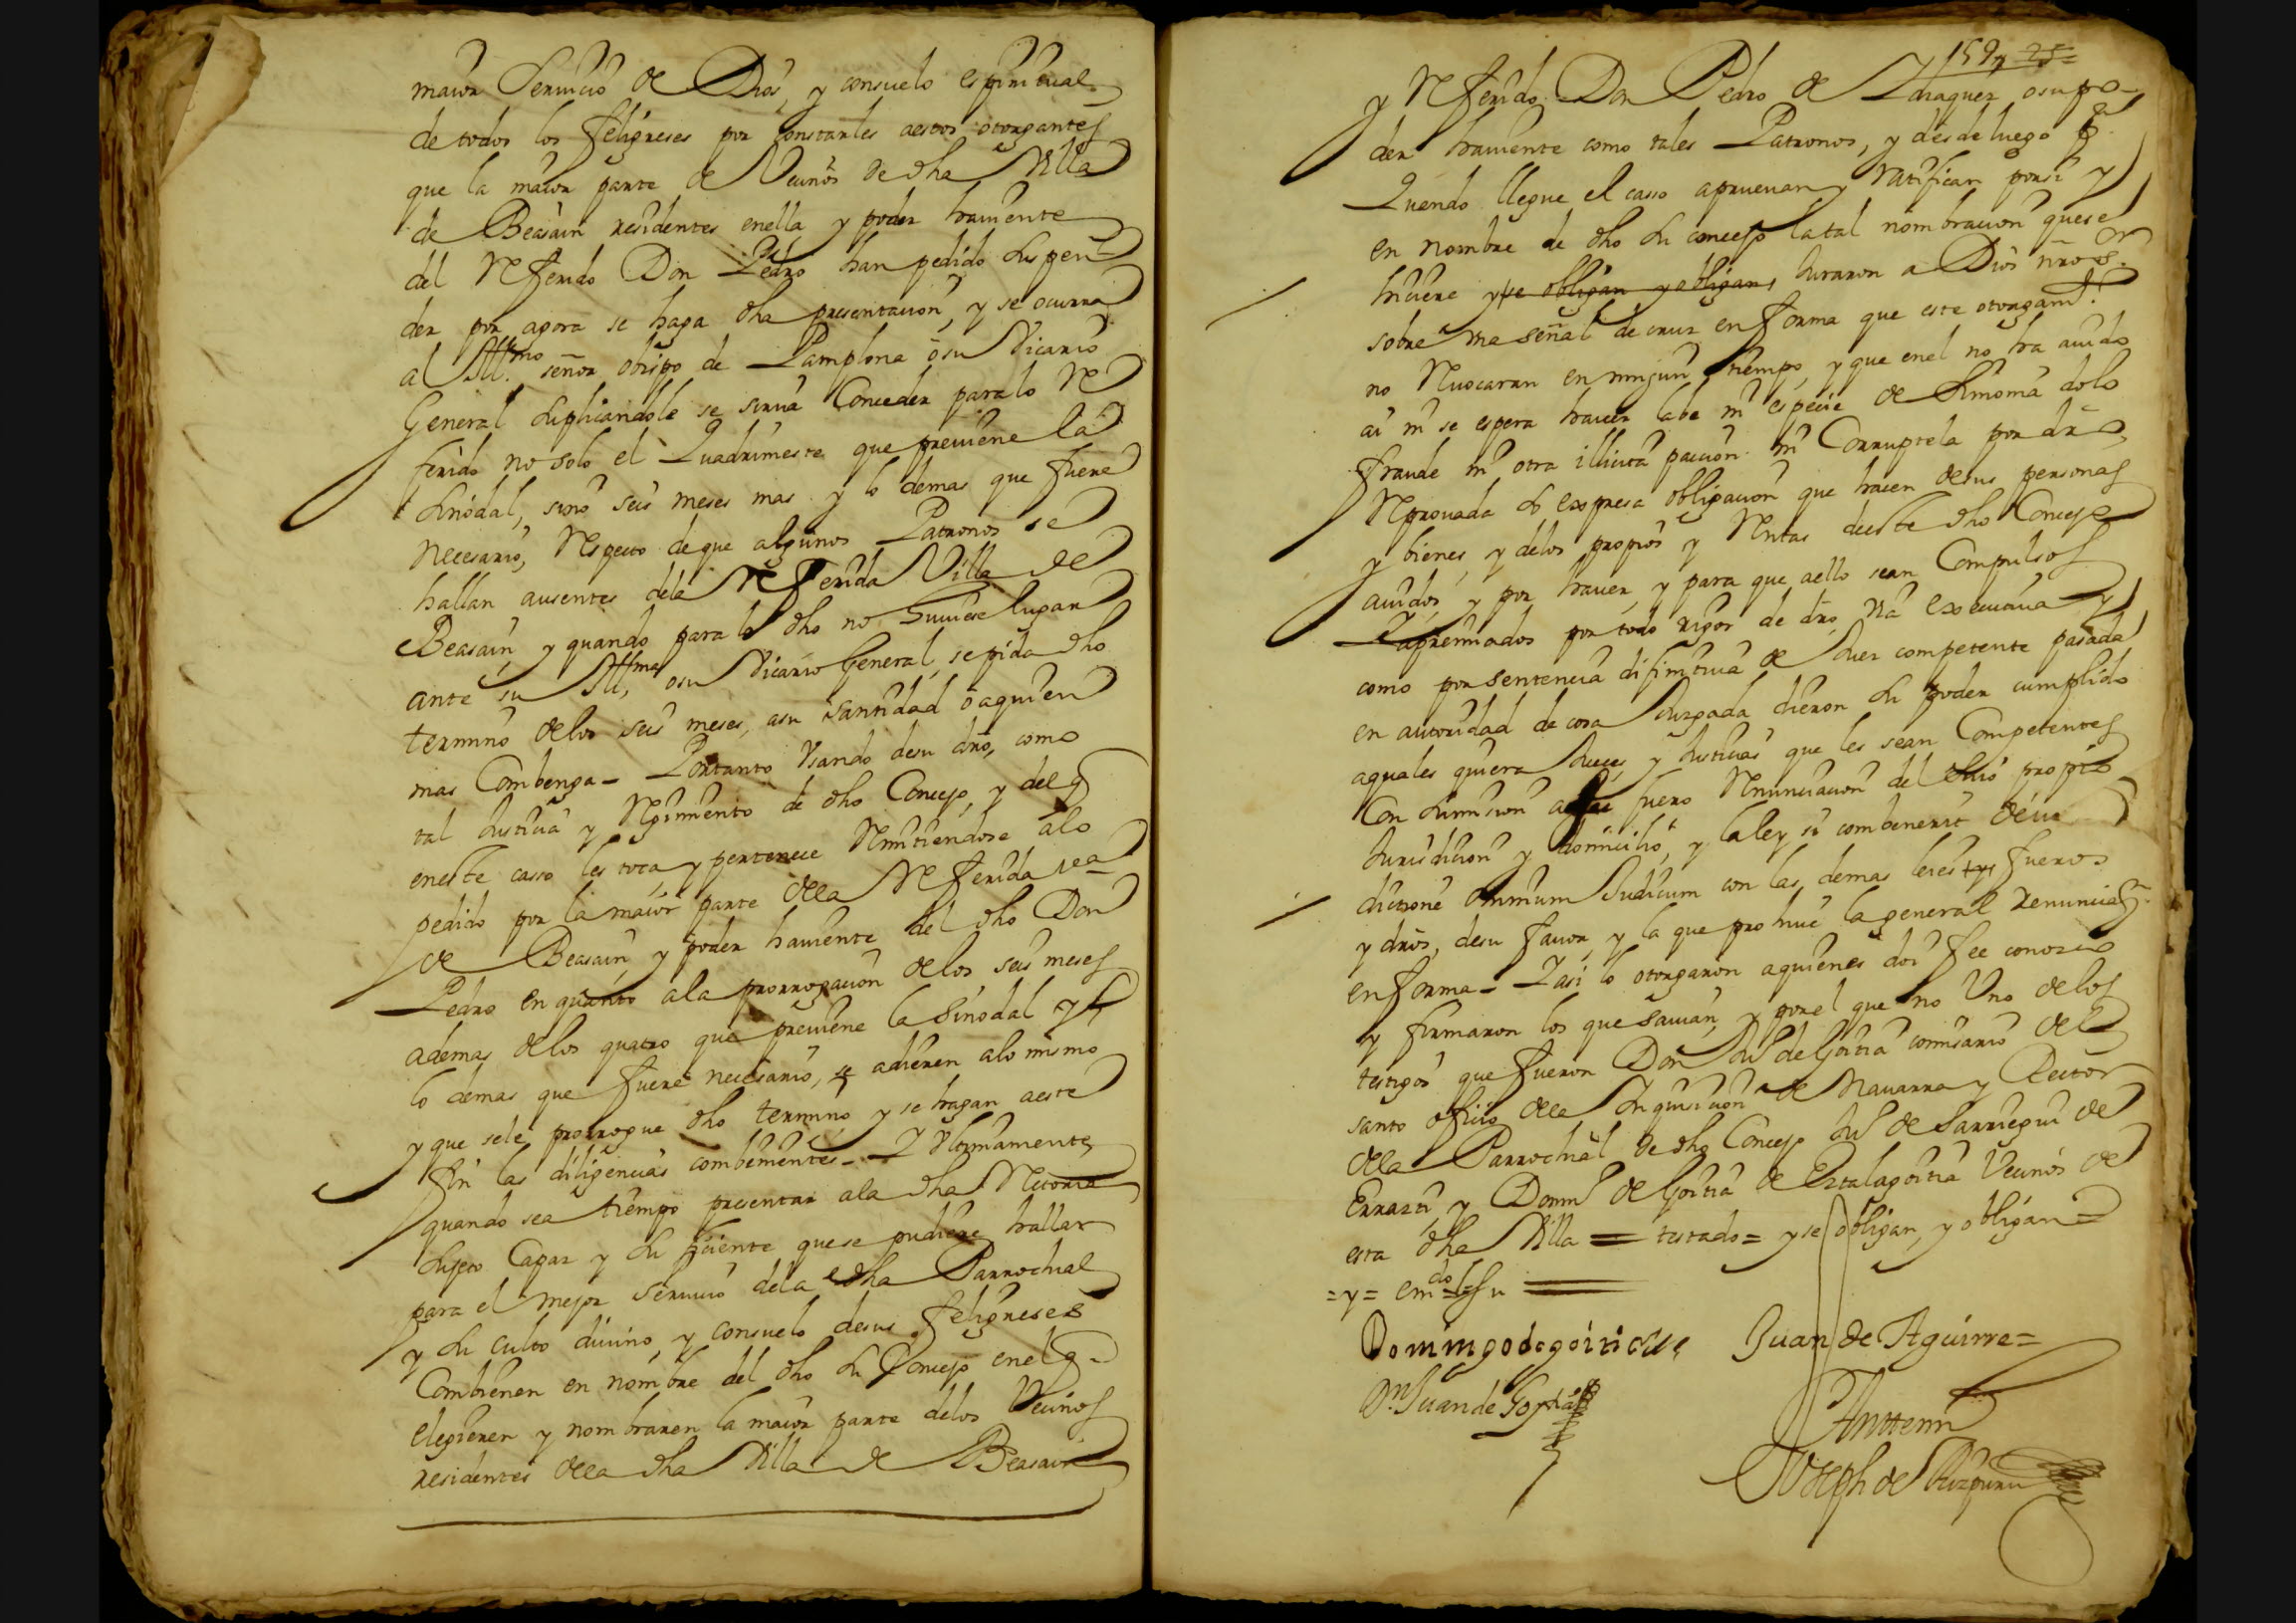 maior Seruicio de Dios, y consuelo espiritual
de todos los feligreses por constarles aestos otorgantes
que la maior parte de Vecinos de dha Villa
de Beasain residentes enella y poder hauiente
del Referido Don Pedro han pedido suspen-
der por agora se haga dha presentacion, y se ocurra
al Illmo señor obispo de Pamplona osu Vicario
General suplicandole se sirua Conceder paralo Re
ferido no solo el Quadrimestre que preuiene la
sinodal, sino seis meses mas y lo demas que fuere
necesario, Respecto deque algunos Patronos se
hallan ausentes dela Referida Villa de
Beasain, y quando para lo dho no huuiere lugar
ante su Illma, osu Vicario General, se pida dho
termino delos seis meses, asu santidad o aquien
mas Combenga - Portanto Vsando desu dro, como
tal Justicia y Regimiento de dho Concejo, y del q
eneste casso les toca y pertenece Remitiendose alo
pedido por la maior parte dela Referida
de Beasain y poder hauiente del dho Don
Pedro en quanto ala prorrogacion delos seis meses
ademas delos quatro que preuiene la Sinodal y
lo demas que fuere necesario, se adieren alo mismo
y que sele prorrogue dho termino, y se hagan aeste
fin las diligencias combenientes - Y Vltimamente,
quando sea tiempo presentar ala dha Retoria
sujeto Capaz y su fiziente quese pudiere hallar
para el mejor seruicio dela dha Parrochial
y su culto diuino, y consuelo desus feligreses
Combienen en nombre del dho su Concejo enel q-
elegieren y nombraren la maior parte delos Vecinos
residentes dela dha Villa de Beasain
159 25=
y Referido Don Pedro de Ydiaquez osu po-
der hauiente como tales Patronos, y desde luego pª
Quando llegue el casso aprueuan y ratifican porsi y
en nombre de dho su concejo la tal nombracion quese
hiciere y se obligan y obligan, Juraron a Dios nro sr
sobre vna señal de cruz en forma que este otorgamto
no Reuocaran en ningun tiempo, y que enel no ha auido
ai ni se espera hauer labe ni especie de Simonia dolo
fraude ni otra illicita paccion ni Corruptela por dro
Reprouada so expresa obligacion que hacen desus personas
y bienes, y delos propios y Rentas deeste dho Concejo
auidos y por hauer, y para que aello sean Compulsos
Y apremiados por todo rigor de dro, via executiua y
como por sentencia difinitiua de Juez competente pasada
en autoridad de cosa Juzgada dieron su poder cumplido
aquales quiera Jueces y Justicias que les sean Competentes
Con sumision a fuero Renunciacion del suio propio
Jurisdicion y domicilio, y la ley si combenerit de iuris
dictione omnium Judicum con las demas leies fueros
y dros, desu fauor, y la que prohiue la general renunciaçon
enforma - Y asi lo otorgaron aquienes doi fee conozco
y firmaron los que sauian, y porel que no Vno delos
testigos que fueron Don Jun de Goitia comisario del
santo oficio dela Inquisicion de Nauarra y Rector
dela Parrochial de dho Concejo Jun de Sarriegui de
Errazti, y Domo de Goitia de Eztalagoitia Vecinos de
esta dha Villa = testado = y se obligan, y obligan =
=y= emdo
Domingo de goitia Juan de Aguirre=
Dn Juan de Goytia
Anttemi
Joseph de Aizpuru